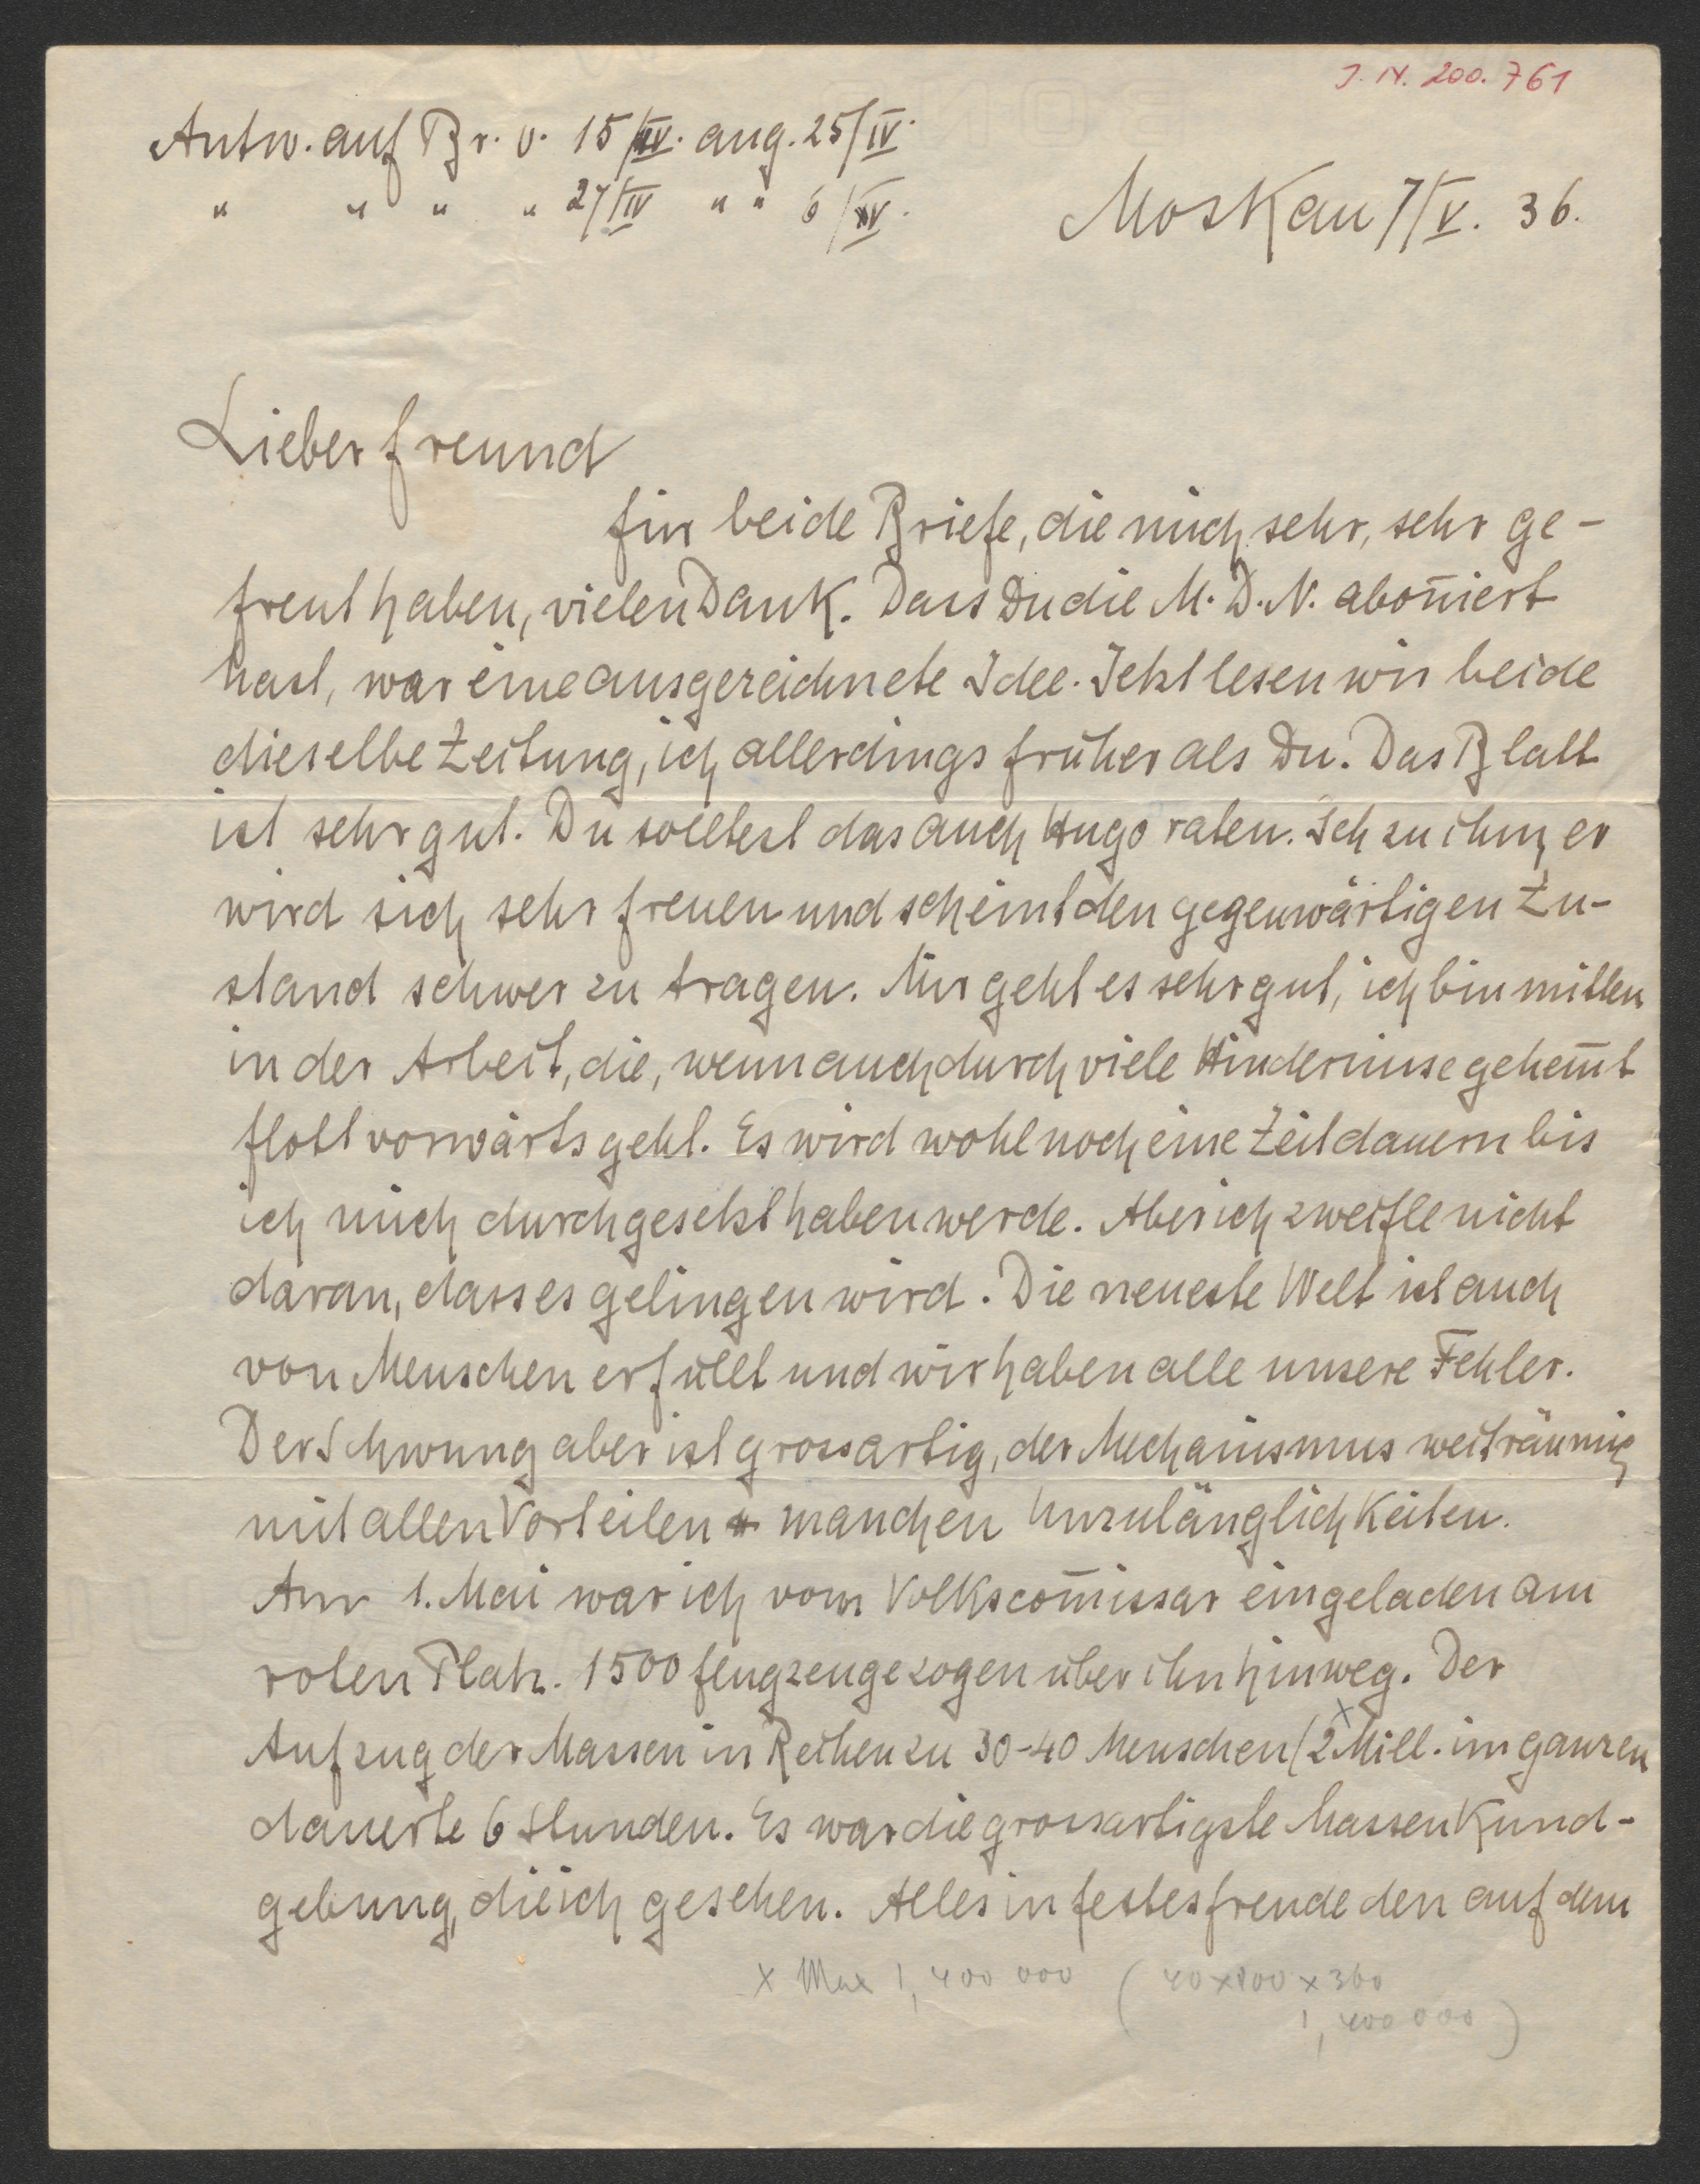 J. N. 200.761
Antw. auf Br. v. 15/IV. ang. 25/IV.
" " " " 27/IV " " 6/V.
Moskau 7/V. 36.
Lieber Freund
für beide Briefe, die mich sehr, sehr ge-
freut haben, vielen Dank. Dass Du die M. D. N. abon̄iert
hast, war eine ausgezeichnete Idee. Jetzt lesen wir beide
dieselbe Zeitung, ich allerdings früher als Du. Das Blatt
ist sehr gut. Du solltest das auch Hugo raten. Ich zu ihm, er
wird sich sehr freuen und scheint den gegenwärtigen Zu-
stand schwer zu tragen. Mir geht es sehr gut, ich bin mitten
in der Arbeit, die, wenn auch durch viele Hindernisse gehem̄t
flott vorwärts geht. Es wird wohl noch eine Zeit dauern bis
ich mich durchgesetzt haben werde. Aber ich zweifle nicht
daran, dass es gelingen wird. Die neueste Welt ist auch
von Menschen erfüllt und wir haben alle unsere Fehler.
Der Schwung aber ist grossartig, der Mechanismus weiträumig
mit allen Vorteilen manchen Unzulänglichkeiten.
Am 1. Mai war ich vom Volkscom̄issar eingeladen am
roten Platz. 1500 Flugzeuge zogen über ihn hinweg. Der
Aufzug der Massen in Reihen zu 30-40 Menschen (2 x Mill. im ganzen
dauerte 6 Stunden. Es war die grossartigste Massenkund-
gebung, die ich gesehen. Alles in Festesfreude den auf dem
x Max 1,400 000 (40x100x360
1,400 000)